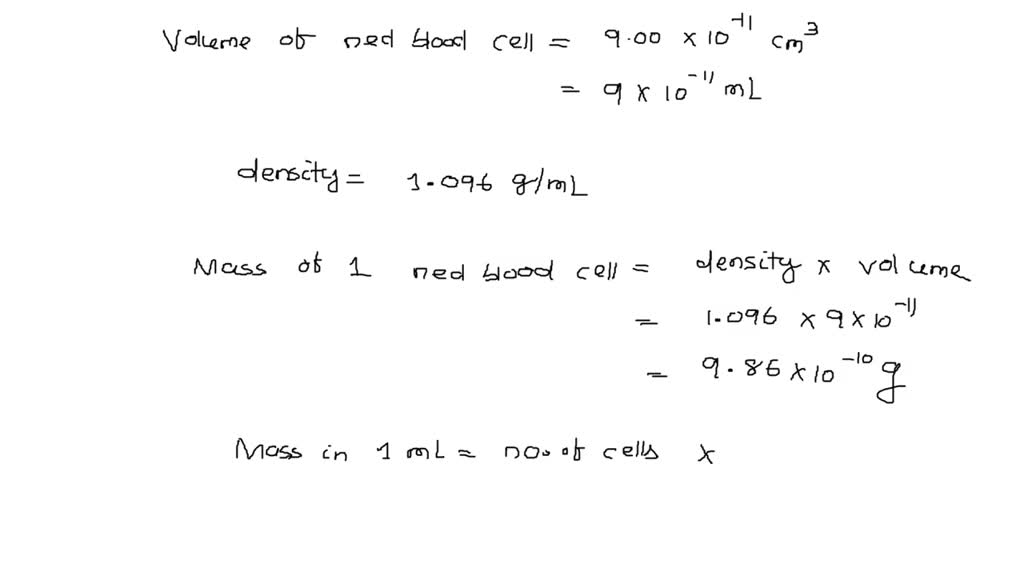 Volume of ned blood cell = 9.00 × 10⁻¹¹ cm³
= 9 × 10⁻¹¹ mL
density = 1.096 g/mL
Mass of 1 ned blood cell = density × volume
= 1.096 × 9 × 10⁻¹¹
= 9.86 × 10⁻¹⁰ g
Mass in 1 mL = no. of cells ×